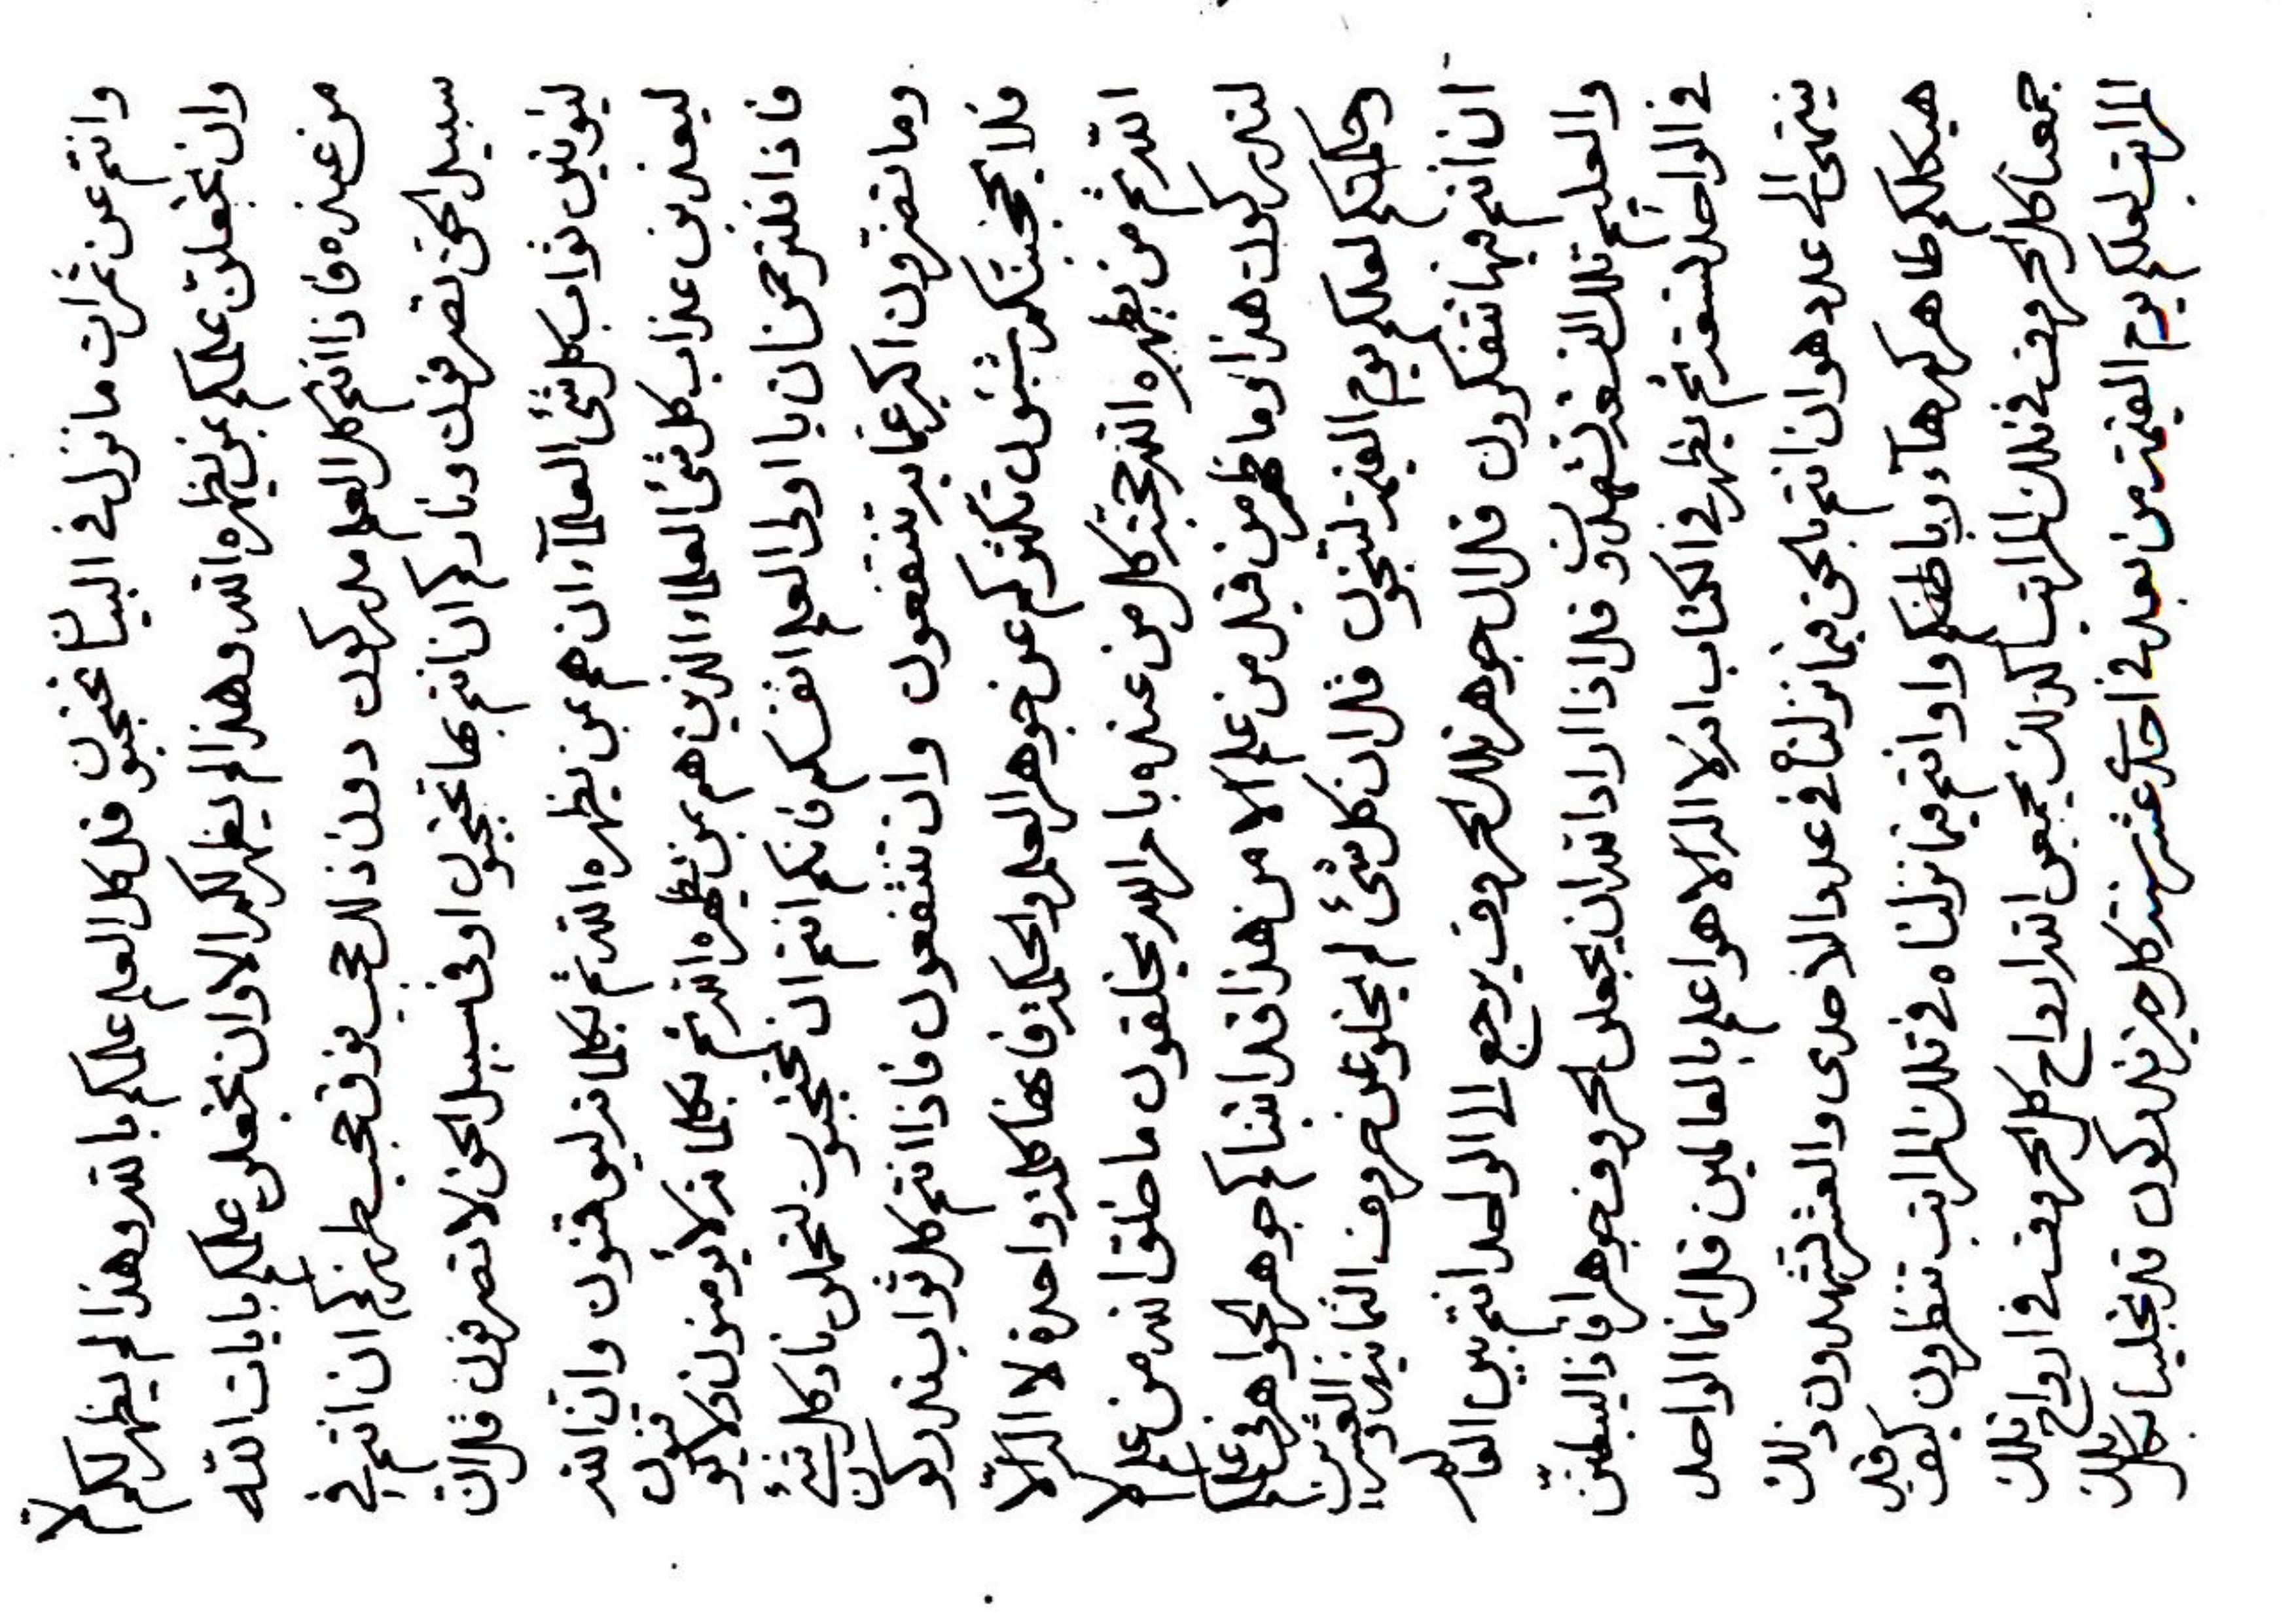 وانتم عن ثمرات ما نزل في البيان محتجبون قل كل العلم علمكم بالله وهذا لم يظهر لكم الا
وان بخعلن علمكم بمن يظهره الله وهذا لم يظهر لكم الا وان بخعلن علمكم بايات الله
من عنده فاذا انتم كل العلم مدركون دون ذلك حجب فوق حجب طرزكم ان انتم في
سبيل الحق تصرفون ونارکم ان انتم بها تحتجبون او في سبيل الحق لا تصرفون قل ان
ليؤتين ثواب كل شئ العلماء ان هم بمن يظهره الله ثم بكلماته ليوقنون وان الله
ليعذبن عذاب كل شئ العلماء الذين هم بمن يظهره الله ثم بكلماته لا يؤمنون ولا يوقنون
فاذا فلترحمن ان يا اولى العلم انفسكم فانكم انتم ان تحتجبون لتحملن نار كل شئ
وما تضرون اكبر عما به تنتفعون وان تنتفعون فاذا انتم كل ثواب تدركون
فلا يحجبنكم شئون تكثركم عن جوهر العلم والحكمة فانها كلمة واحدة لا اله الا
الله ثم من يظهره الله حجته كل من عنده بامر الله يخلقون ما خلق الله من علم الا
لتدركون هذا وما ظهر من قبل من علم الا من هذا قد انبناكم جوهر الجواهر في علمكم
وحكمتكم لعلكم يوم القيمة لتنجون قل ان كل شئ لم يخلو عن حروف الثمانية والعشرين
ان انتم فيها تتفكرون قل ان جوهر تلك الحروف يرجع الى الواحد انتم بين القائم
والعليم تلك التسعة لتشهدون قل اذا اراد الله ان يجعلن الحروف جوهرا فاذا ليبطنن
في الواحد لتسعة ثم يظهر في الكتاب اذ لا اله الا هو اعلم بالعالمين قل انما الواحد
ينتهى الى عدد هو ان انتم بالحق فيما نزلنا في عدد الاحدى والعشر لتشهدون ذلك
هيكلكم ظاهركم هاء وباطنكم واو انتم فيما نزلناه في تلك المراتب تنظرون كيف قد
جمعنا كل الحروف في تلك المراتب كذلك يجمعن الله ارواح كل الحروف في ارواح تلك
المراتب لعلكم يوم القيمة من بعد في احد عشر سنة كل خير تدركون قد تجلينا بكل تلك